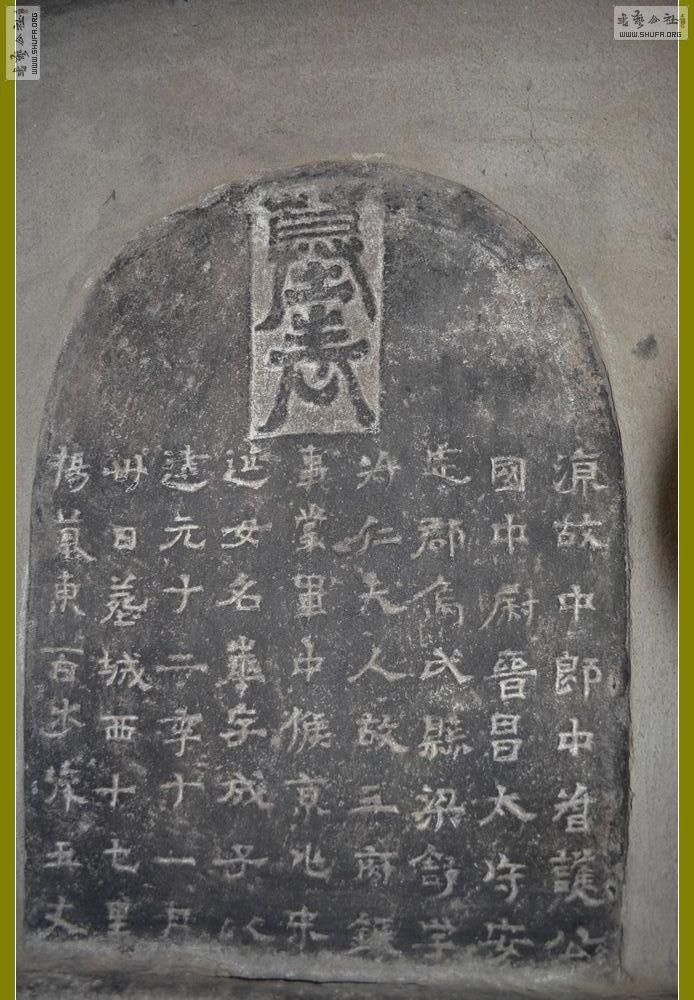 書藝公社
WWW.SHUFA.ORG
書藝公社
WWW.SHUFA.ORG
墓表
涼故中郎中督護公
國中尉晉昌太守安
定郡烏氏縣梁舒字
叔仁夫人故三府錄
事掌軍中候京兆宋
延女名華字成子以
建元十二年十一月
卅日葬城西十七里
楊墓東百步深五丈